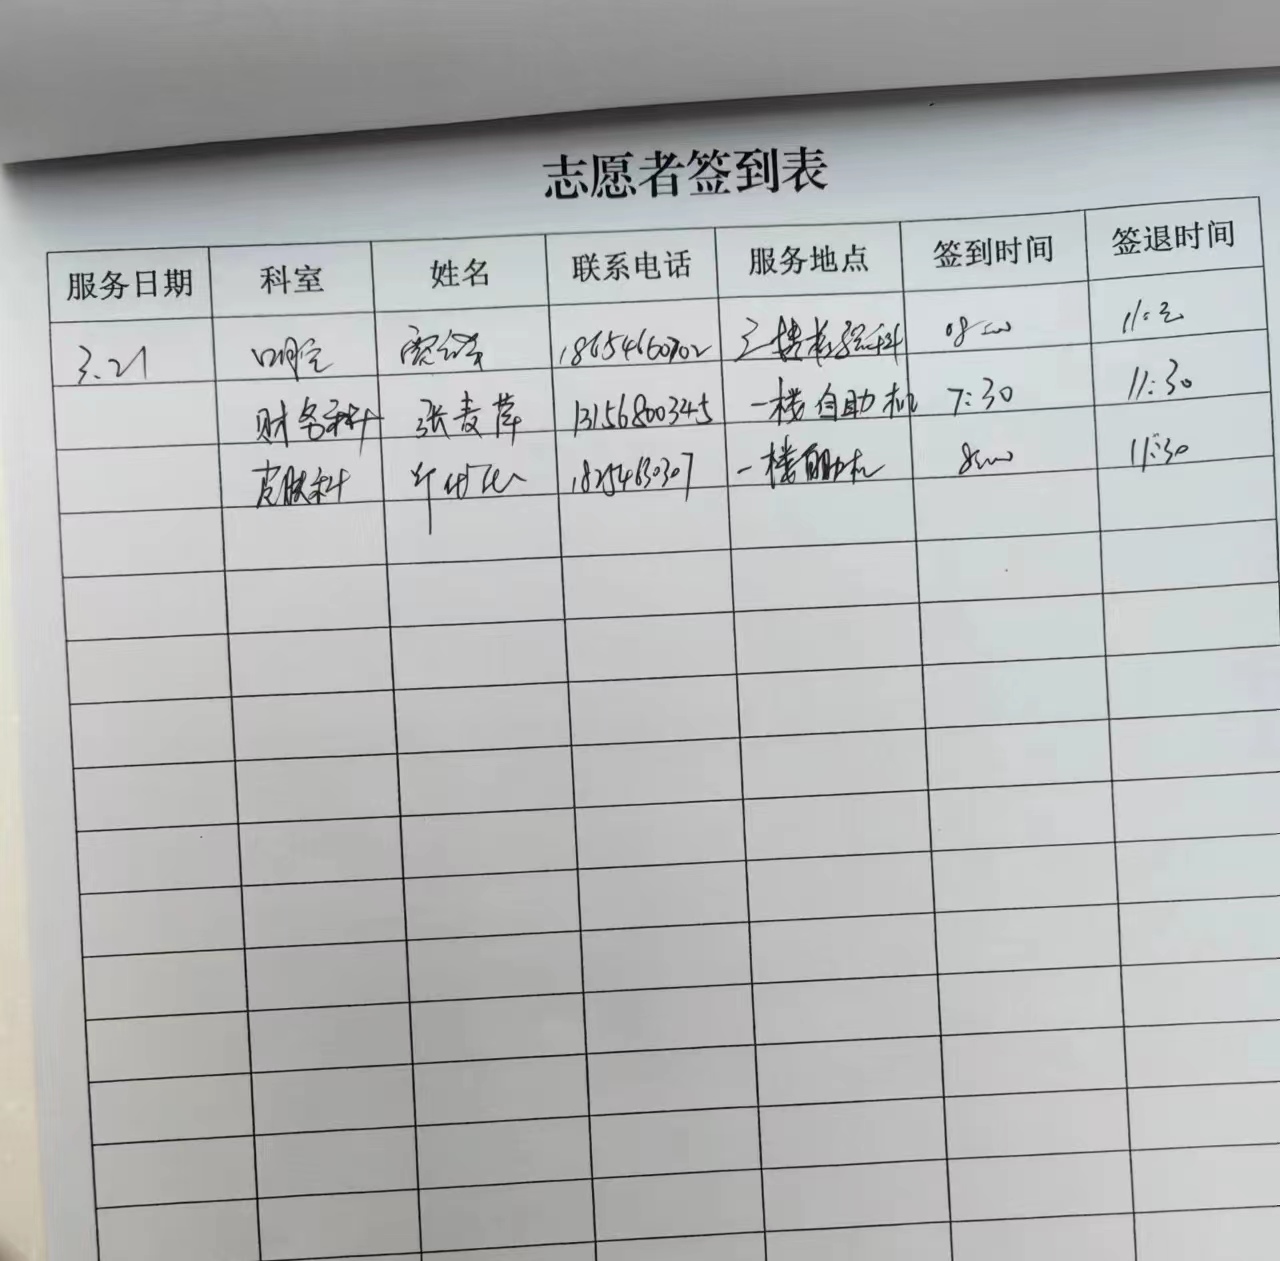 志愿者签到表
服务日期 科室 姓名 联系电话 服务地点 签到时间 签退时间
3.21 口腔 18654660702 三楼 科 08:00
财务科 张麦萍 13156800345 一楼自助机 7:30 11:30
皮肤科 一楼自助机 8:00 11:30